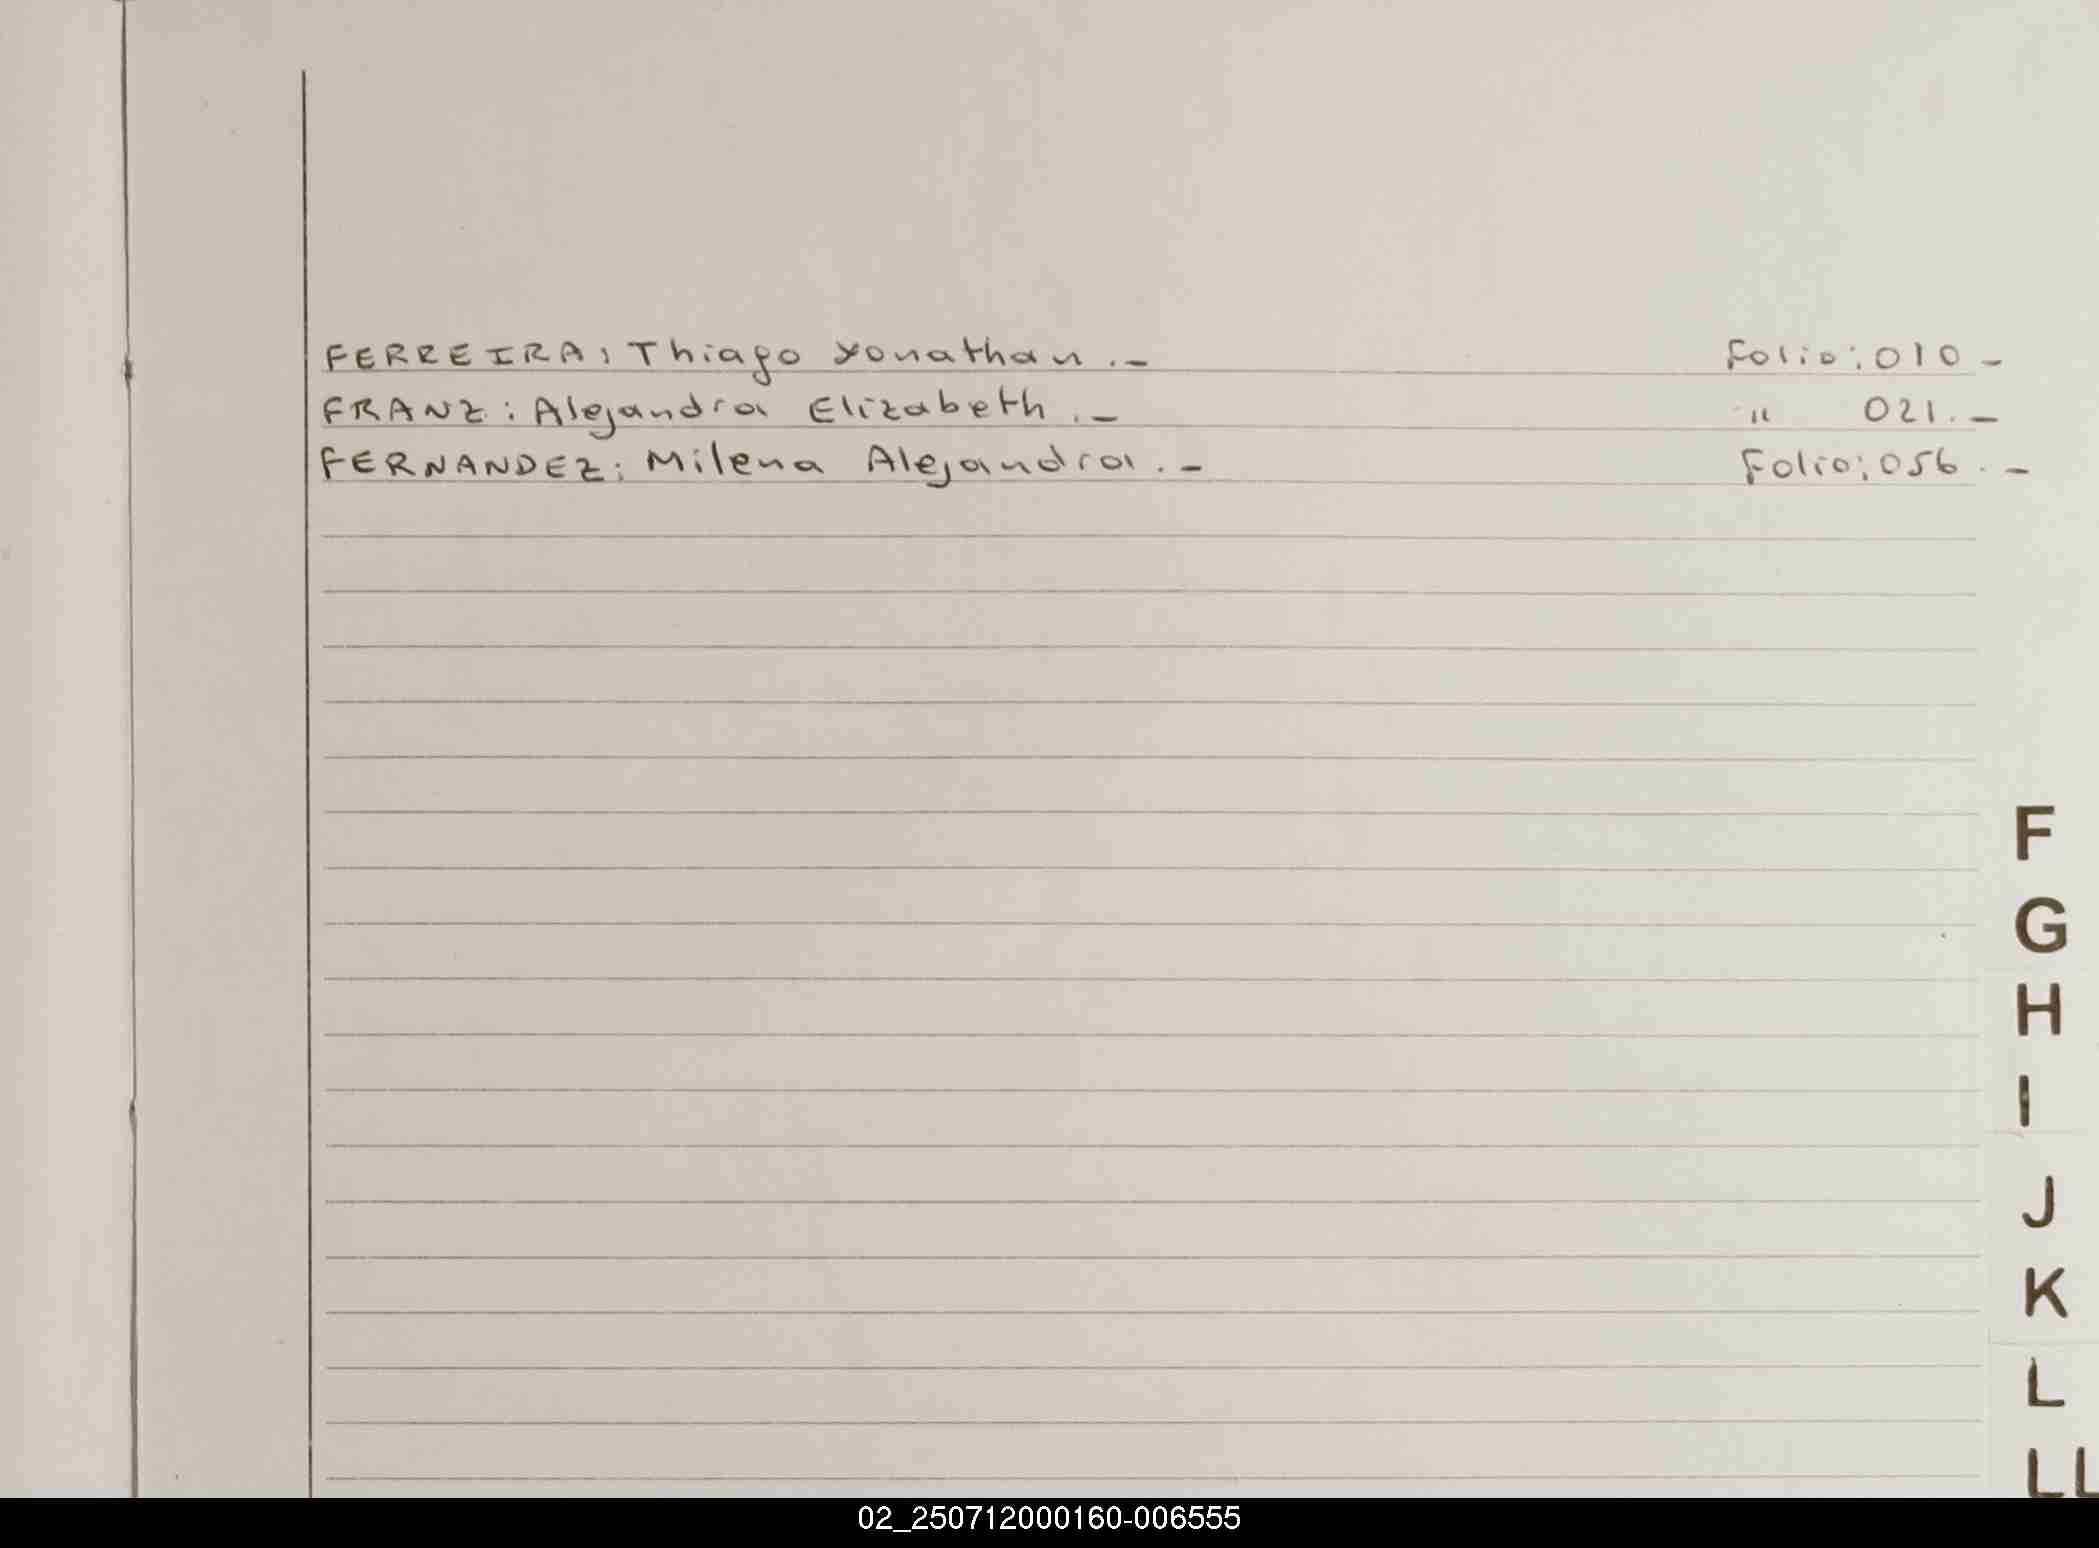 FERREIRA: Thiago Yonathan.- Folio: 010-
FRANZ: Alejandra Elizabeth.- " 021.-
FERNANDEZ: Milena Alejandra.- Folio: 056.-
F
G
H
I
J
K
L
LL
02_250712000160-006555